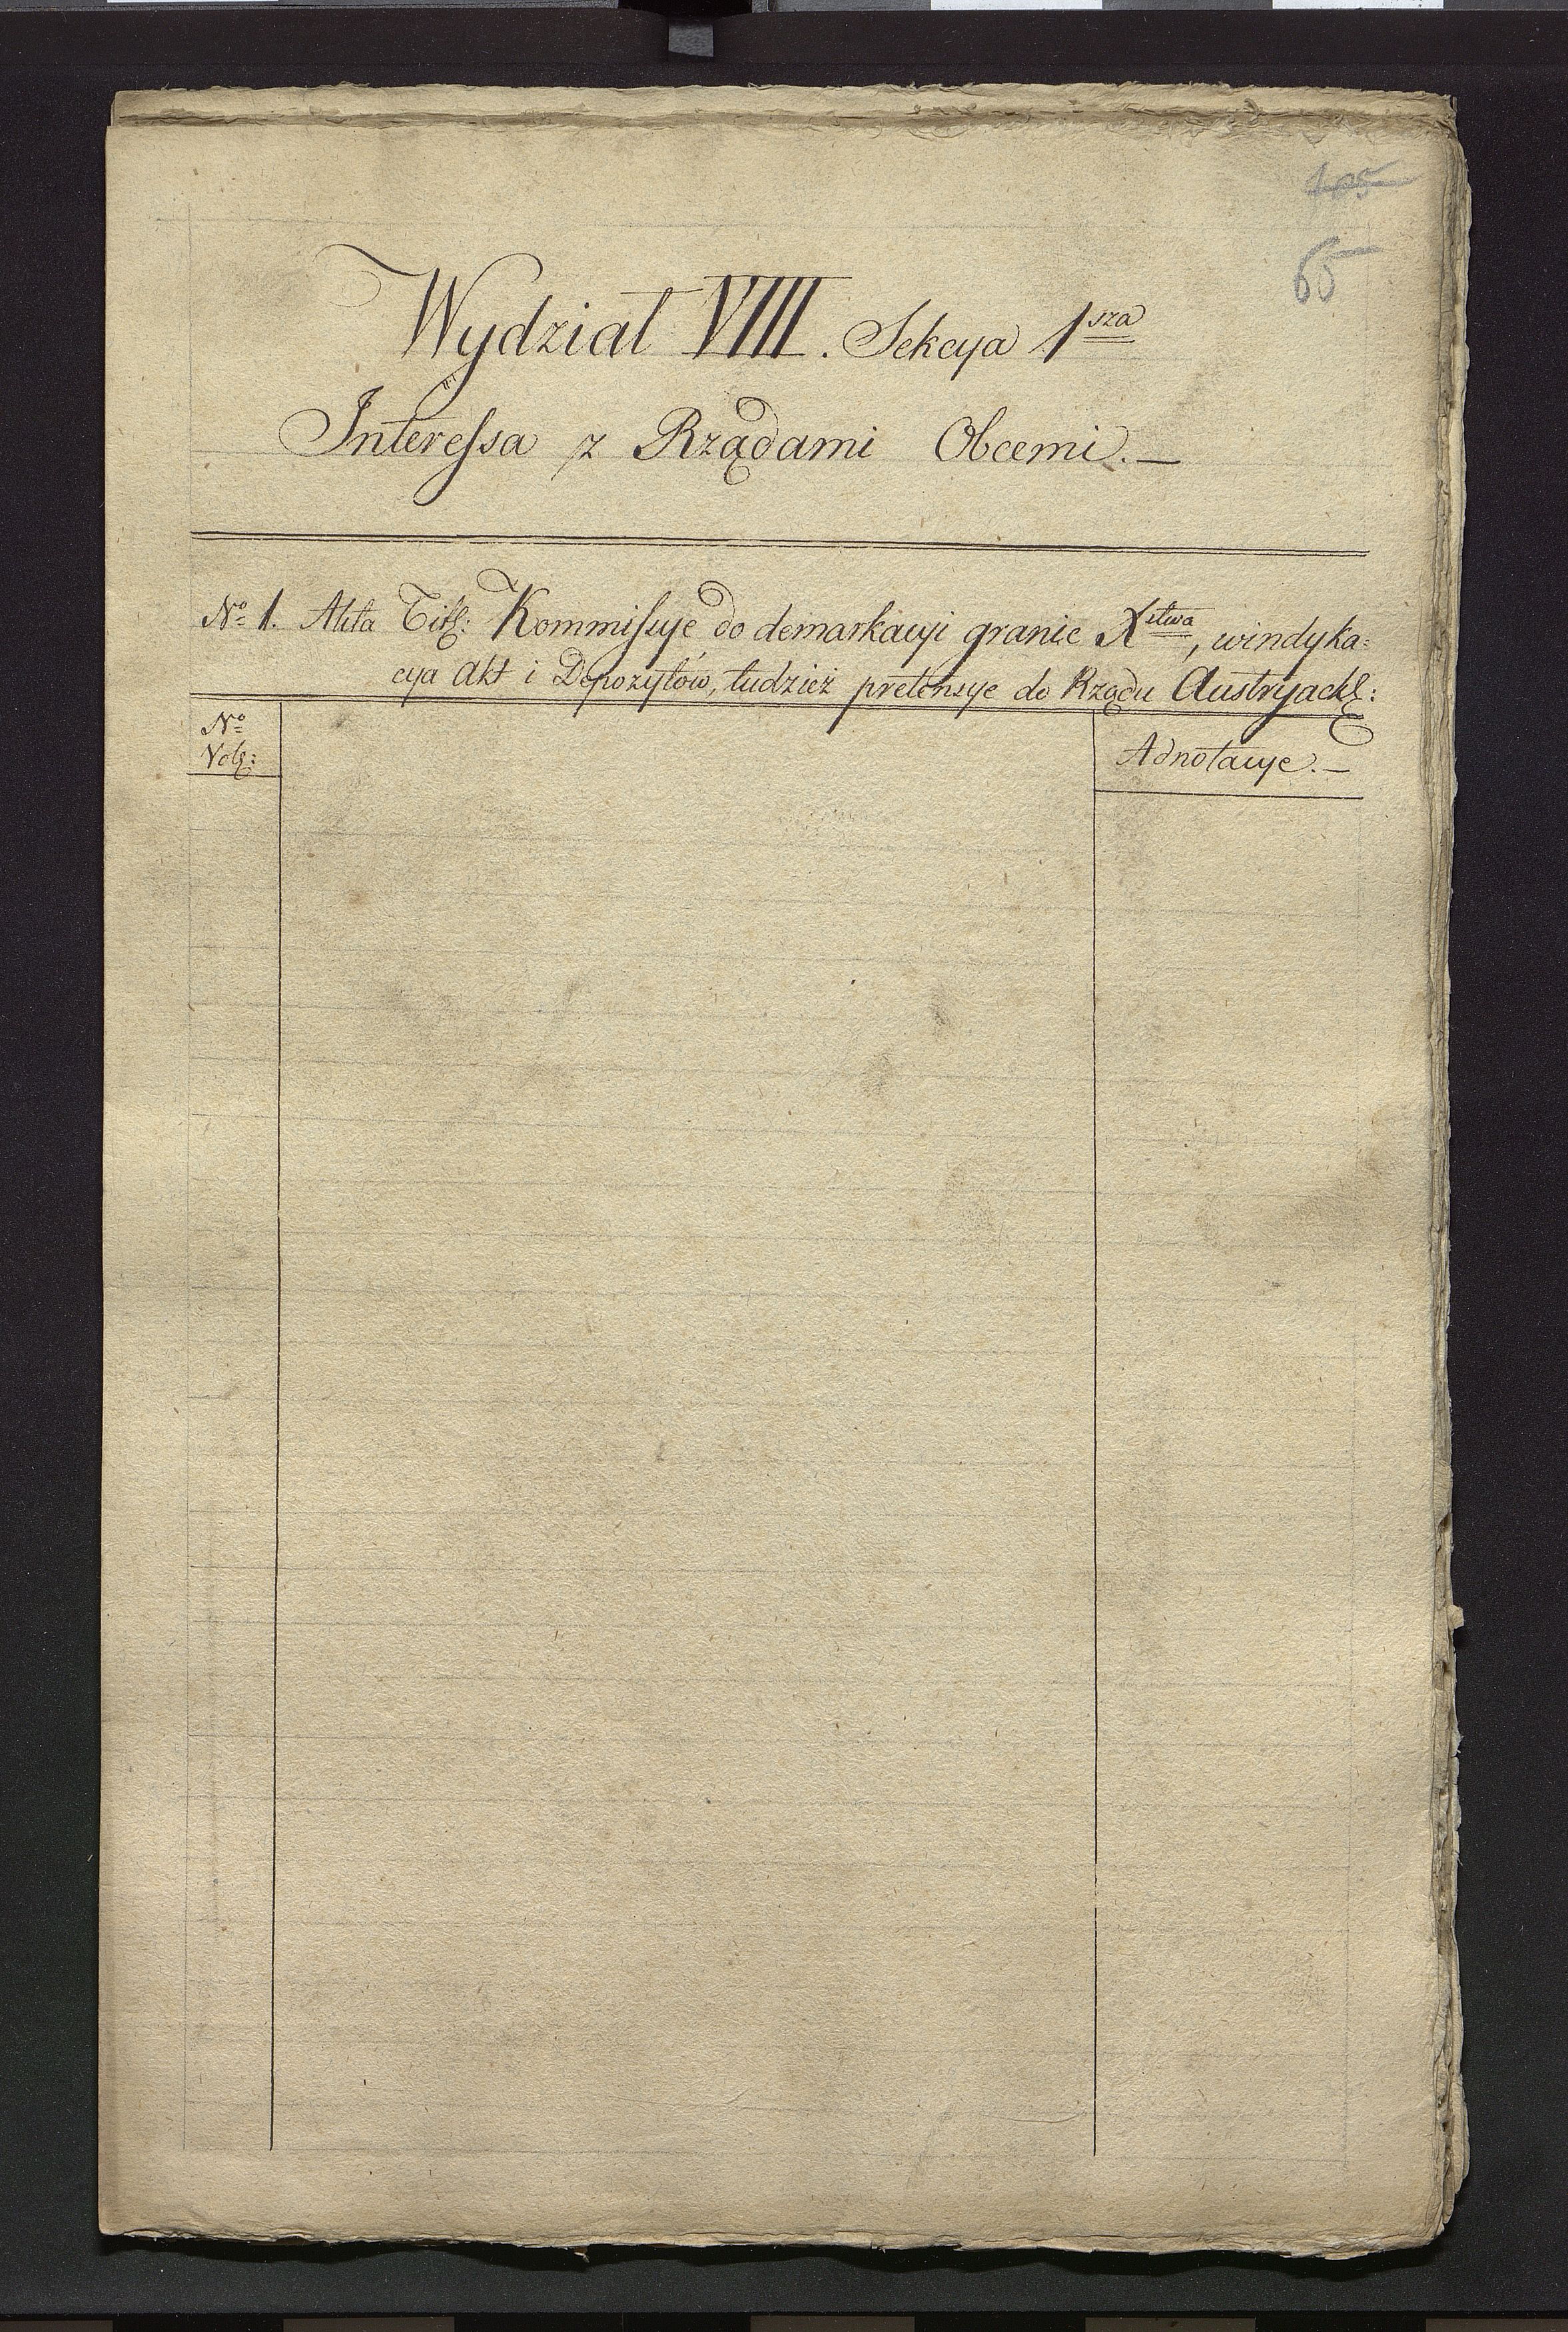 105
65
Wydział VIII. Sekcya 1sza
Interessa z Rządami Obcemi.—
No 1. Akta Titt: Kommissye do demarkacyi granic Xstwa, windyka=
cya Akt i Depozytów, tudzież pretensye do Rządu Austryack:
No
Vol:
Adnotacye.—